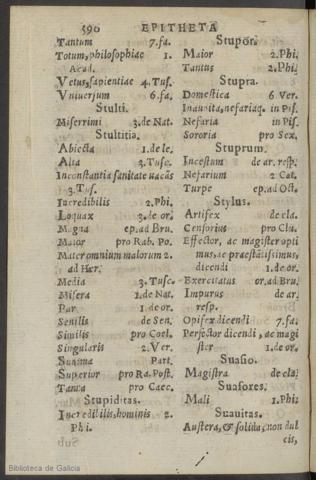 590 EPITHETA
Tantum 7. fa.
Totum, philosophiae 1.
Acad.
Vetus, sapientiae 4. Tus.
Vniuersum 6. fa.
Stulti.
Miserrimi 3. de Nat.
Stultitia.
Abiecta 1. de le.
Alta 3. Tusc.
Inconstantia sanitate uacãs
3. Tus.
Incredibilis 2. Phi.
Loquax 3. de or.
Magna ep. ad Bru.
Maior pro Rab. Po.
Mater omnium malorum 2.
ad Her.
Media 3. Tusc.
Misera 1. de Nat.
Par 1. de or.
Senilis de Sen.
Similis pro Coel.
Singularis 2. Ver.
Summa Part.
Superior pro Ra. Post.
Tanta pro Caec.
Stupiditas.
Incredibilis, hominis 2.
Phi.
Stupor.
Maior 2. Phi.
Tantus 2. Phi.
Stupra.
Domestica 6 Ver.
Inaudita, nefariaq. in Pis.
Nefaria in Pis.
Sororia pro Sex.
Stuprum.
Incestum de ar. resp.
Nefarium 2 Cat.
Turpe ep. ad Oct.
Stylus.
Artifex de cla.
Censorius pro Clu.
Effector, ac magister opti
mus, ac praestãtissimus,
dicendi 1. de or.
Exercitatus or. ad Bru.
Impurus de ar.
resp.
Opifex dicendi 7. fa.
Perfector dicendi, ac magi
ster 1. de or.
Suasio.
Magistra de cla.
Suasores.
Mali 1. Phi.
Suauitas.
Austera, & solida, non dul
cis,
Biblioteca de Galicia